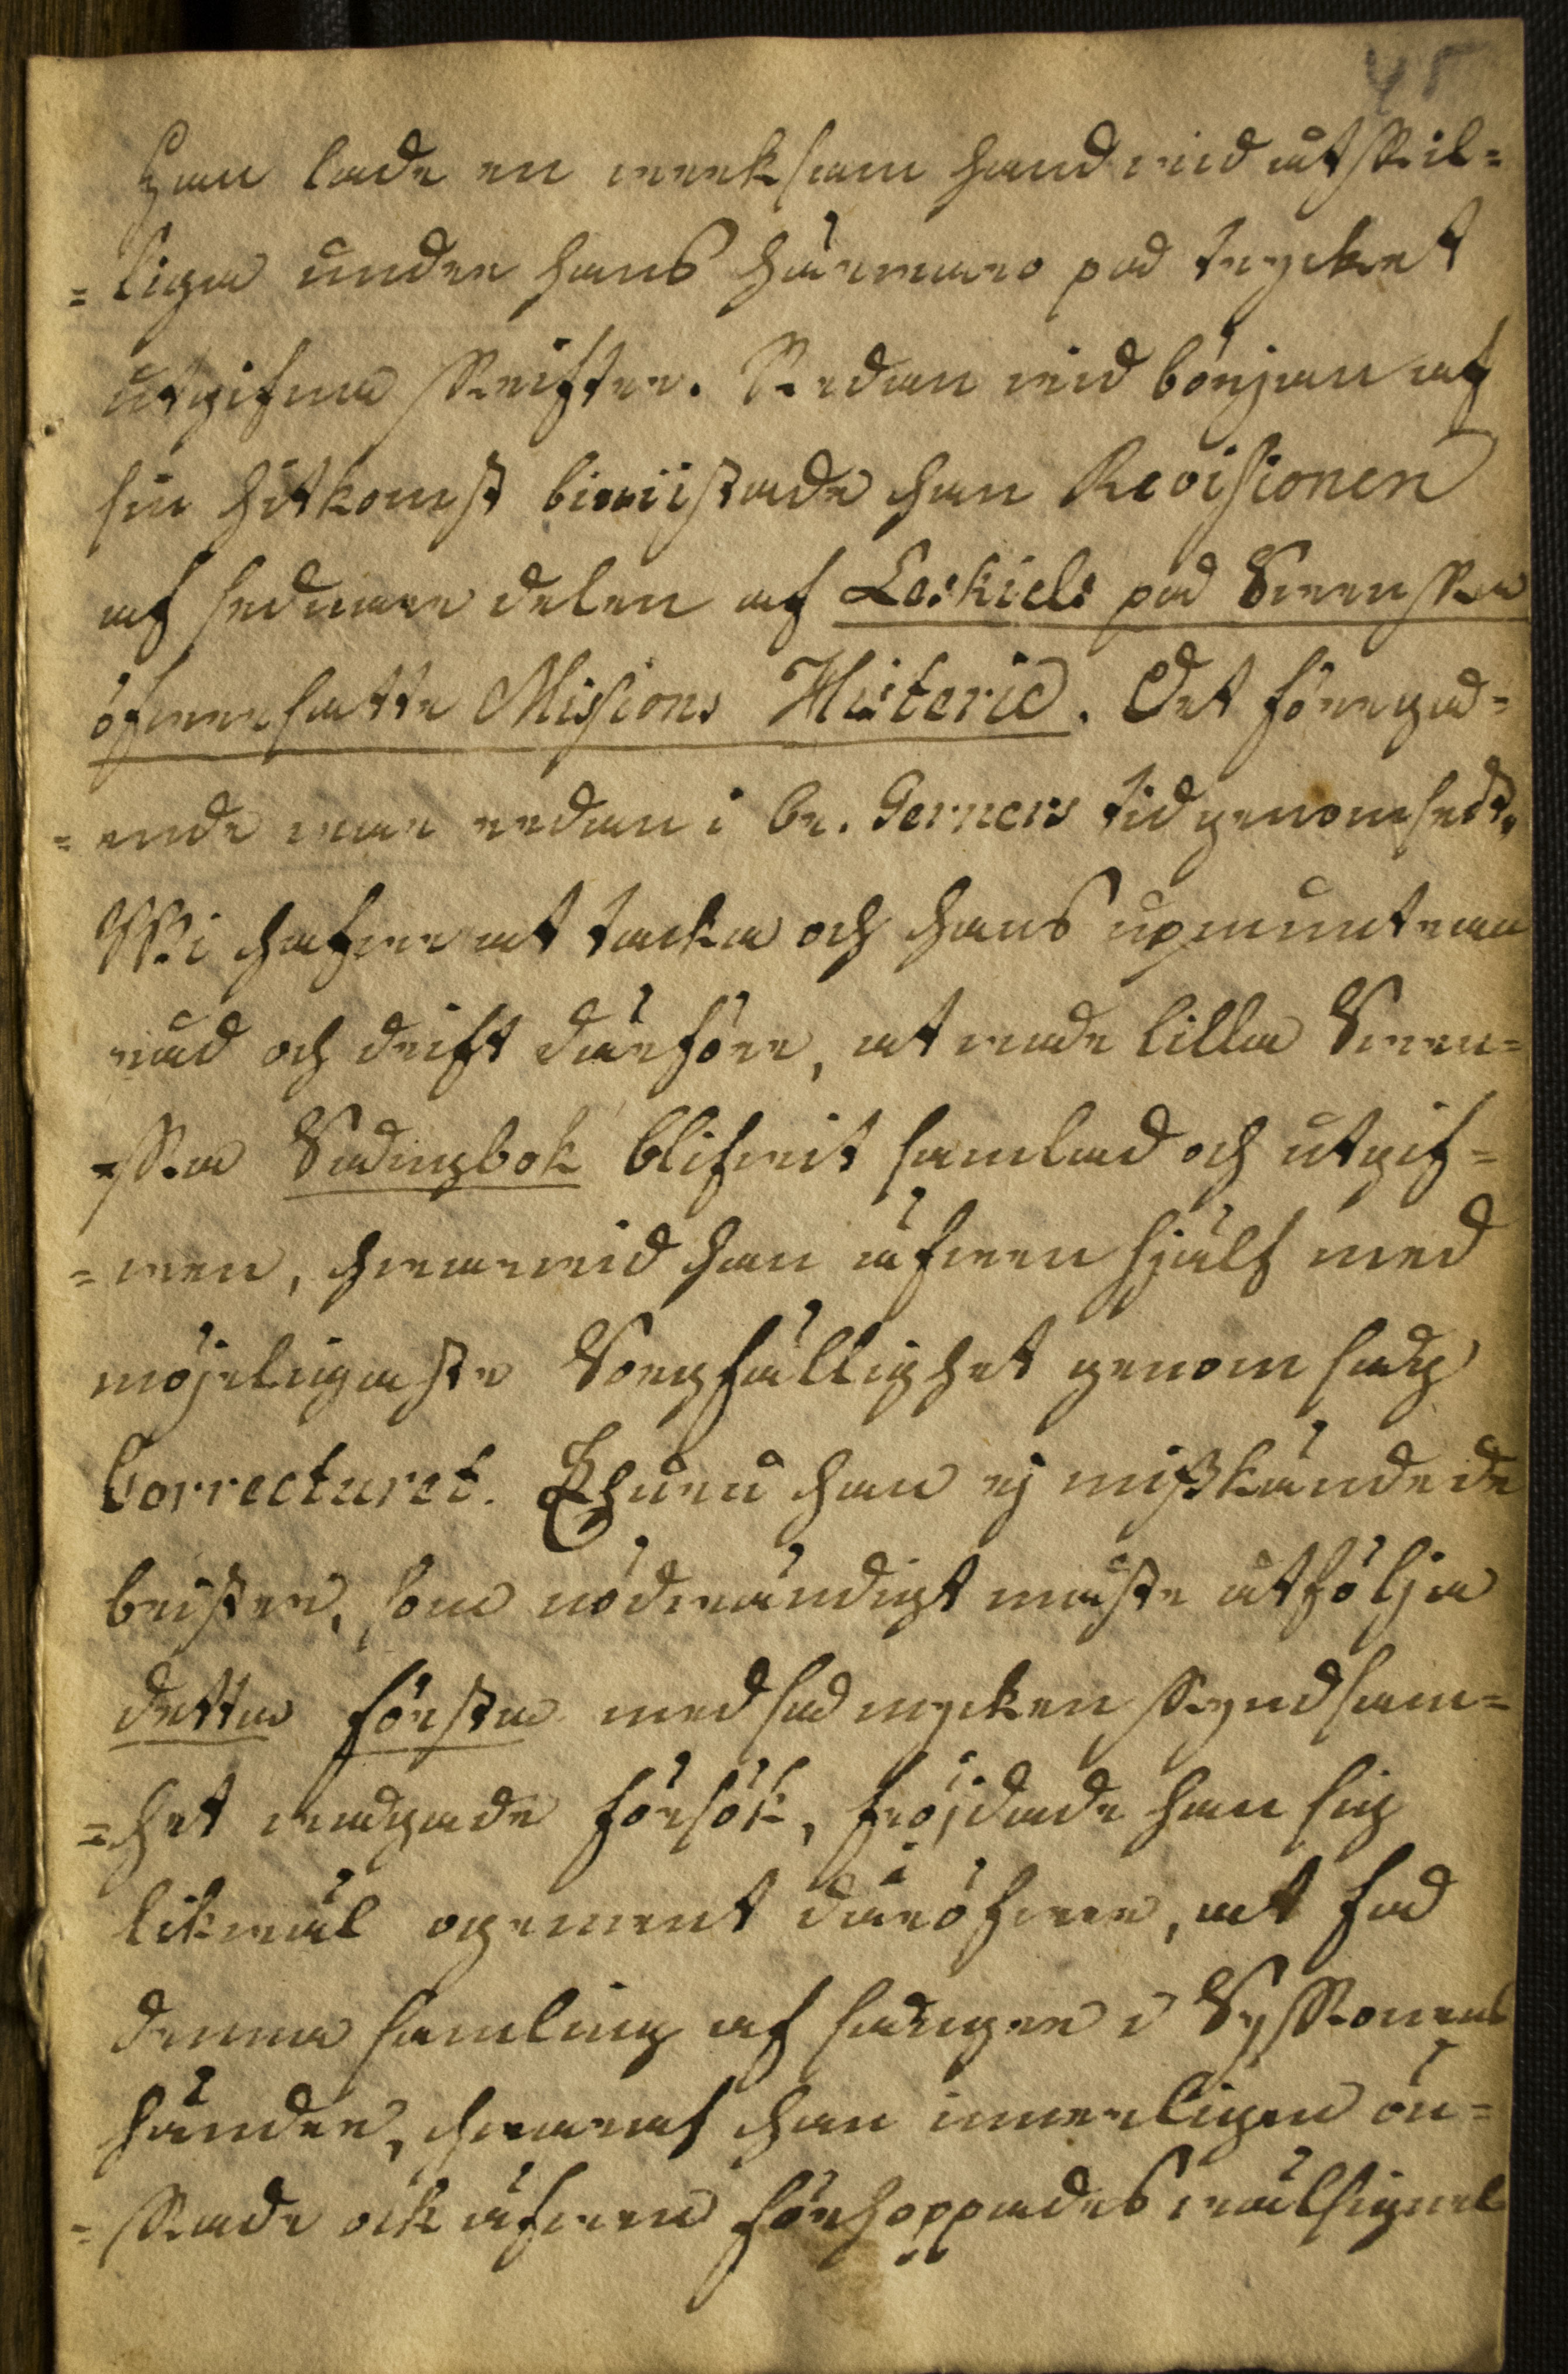 45
Han lade en werksam hand wid åtskil=
=liga under hans härwaro på trycket
utgifna skrifter. Redan wid början af
sin hitkomst biwistade han Revisionen
af sednare delen af Loskiels på Swenska
öfwersatte Missions Historie. Det föregå=
=ende war redan i br. Gerners tid genomsedt.
Wi hafwe at tacka och hans upmuntran
råd och drift därföre, at wåde lilla Swen=
=ska Sångbok blifwit samlad och utgif=
=wen, hwarwid han äfwen sjelf med
möjeligaste Sorgfällighet genomsåg
Correcturet. Ehuru han ej misskände de
brister, som nödwändigt måste åtfölja
detta första med så mycken skyndsam=
=het wågade försök, fröjdade han sig
likwäl ogement däröfwer, at få
denna samling af sånger i Syskonens
händer, hwaraf han innerligen ön=
=skade ock äfwen förhoppades wälsignel